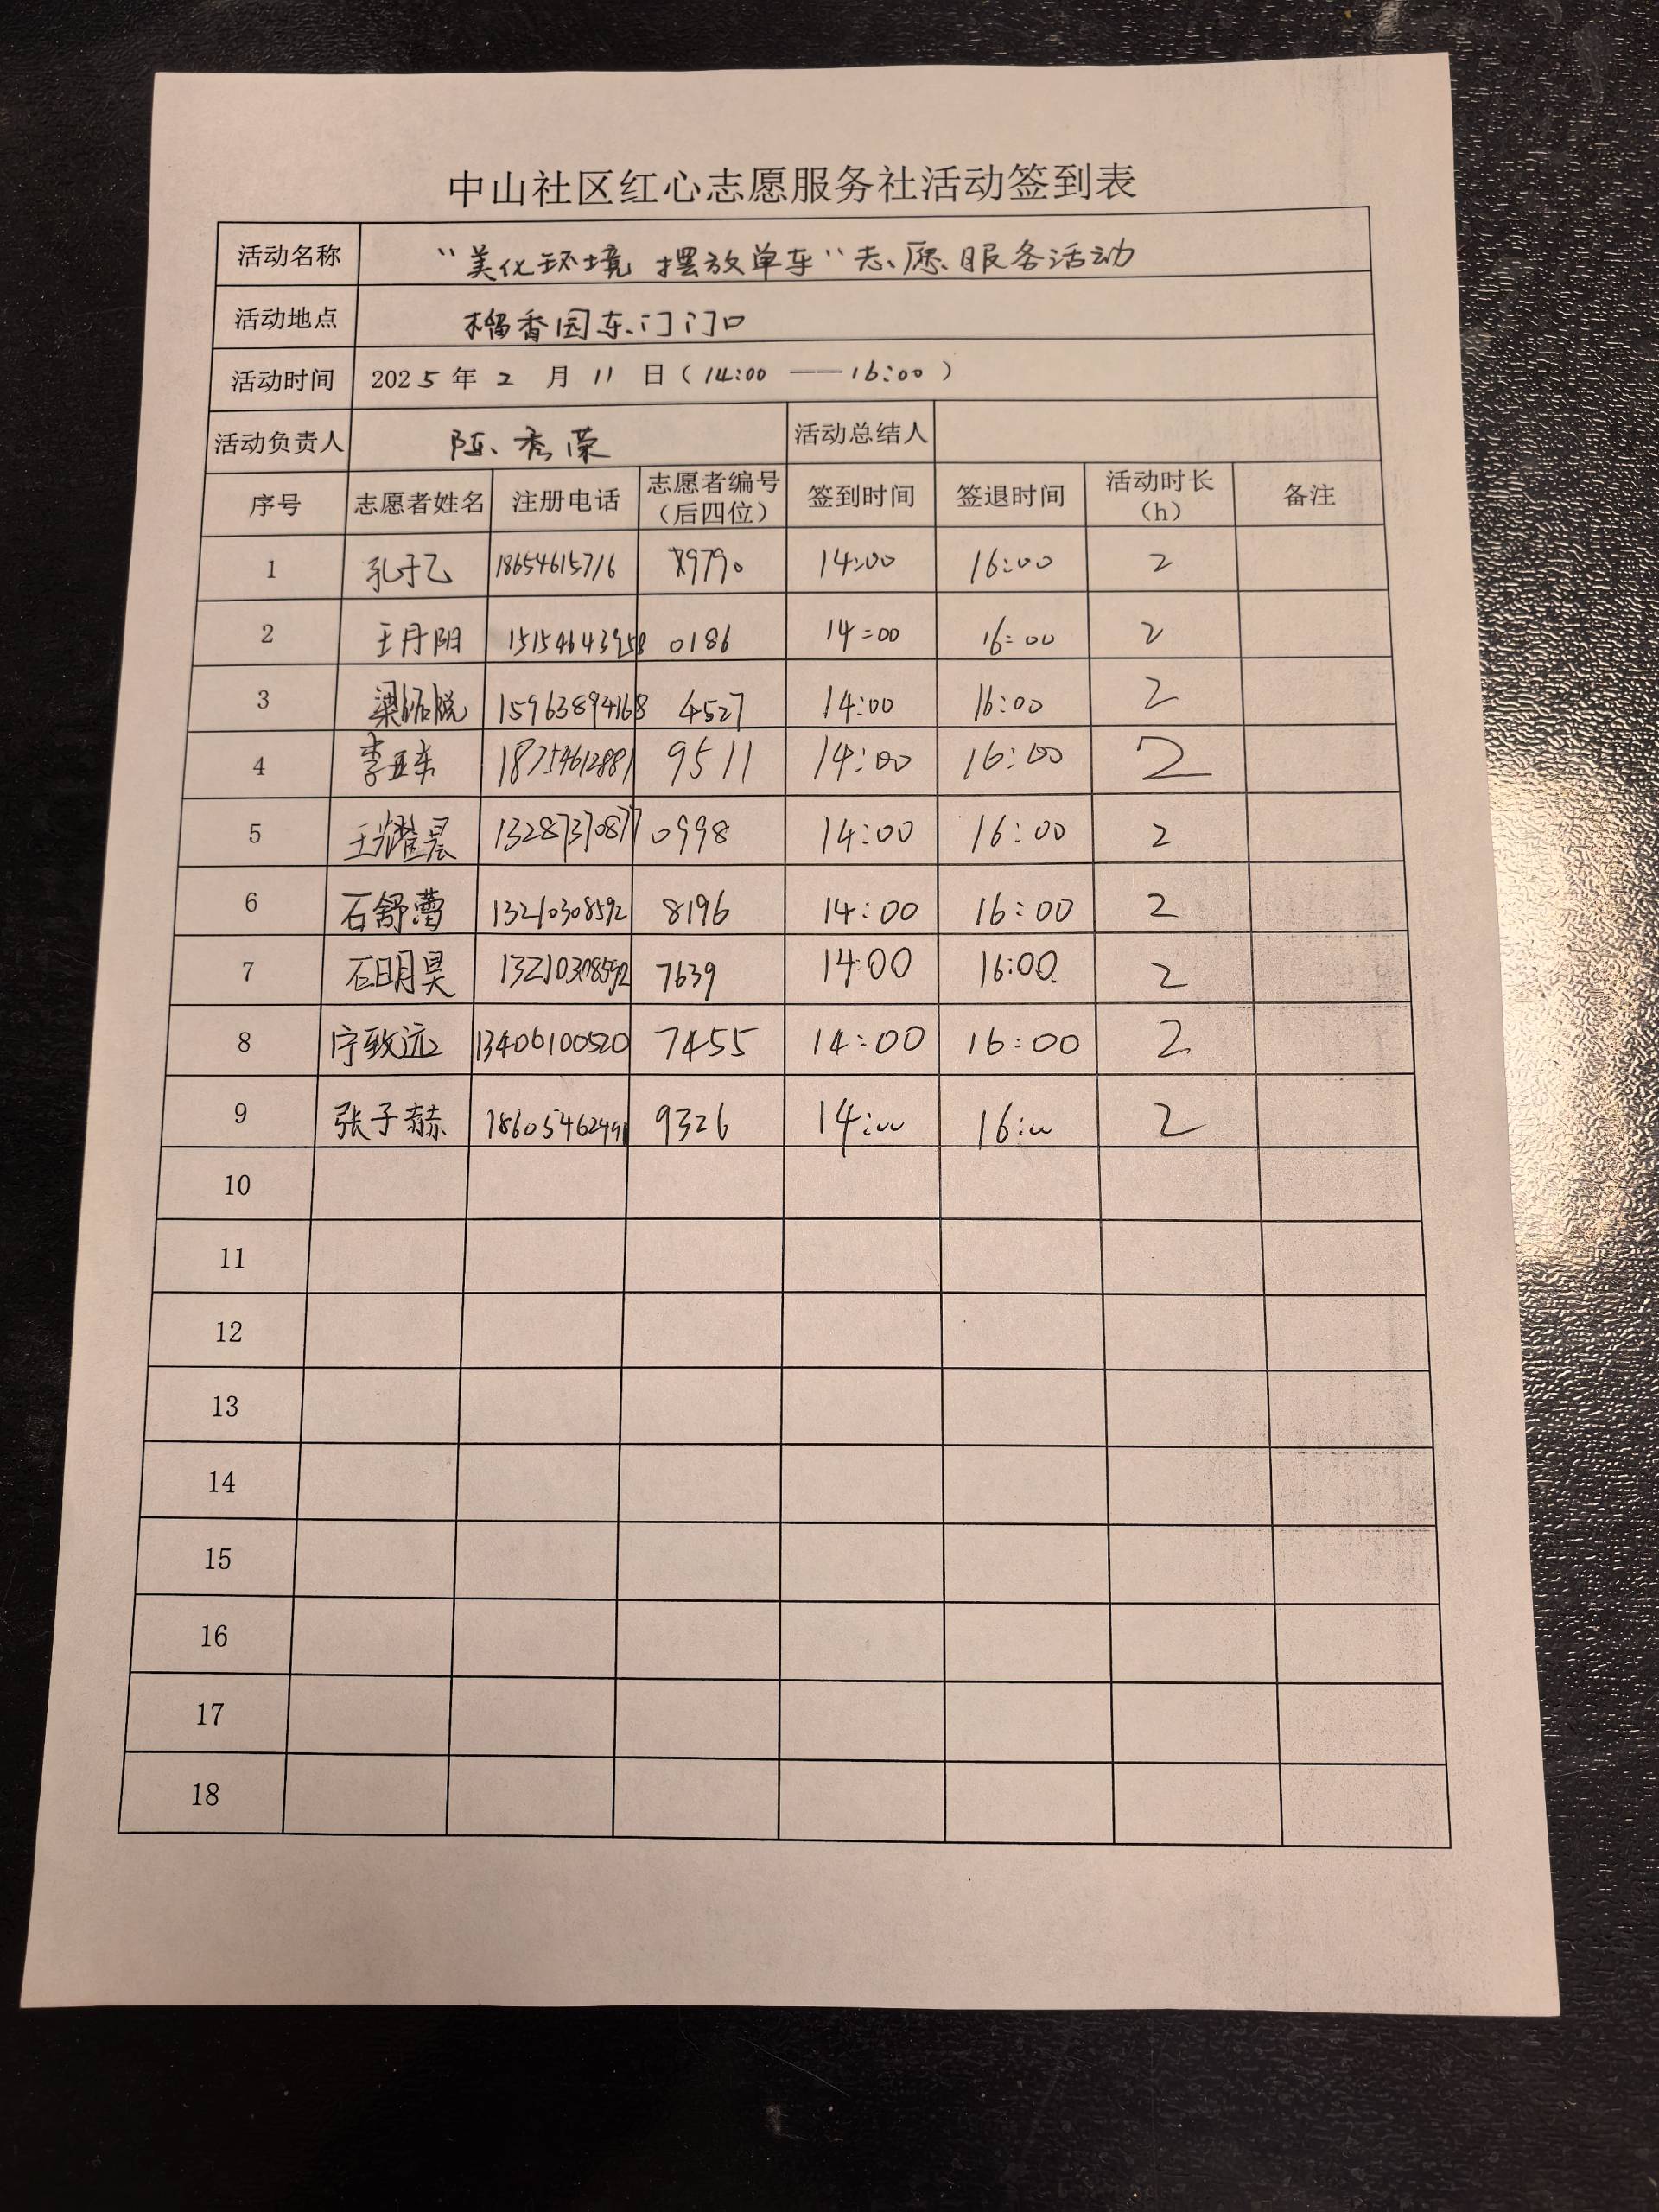 中山社区红心志愿服务社活动签到表
活动名称 "美化环境 摆放单车"志愿服务活动
活动地点 榴香园东门门口
活动时间 2025年2月11日(14:00——16:00)
活动负责人 陈秀荣 活动总结人
序号 志愿者姓名 注册电话 志愿者编号(后四位) 签到时间 签退时间 活动时长(h) 备注
1 孔于乙 18654615716 9790 14:00 16:00 2
2 王丹阳 15154643958 0186 14:00 16:00 2
3 15963894168 4527 14:00 16:00 2
4 李亚东 18754612881 9511 14:00 16:00 2
5 王耀晨 13287370877 0998 14:00 16:00 2
6 石舒蕾 13210308592 8196 14:00 16:00 2
7 石明昊 13210308592 7639 14:00 16:00 2
8 宁致远 13406100520 7455 14:00 16:00 2
9 张子赫 18605462491 9326 14:00 16:00 2
10
11
12
13
14
15
16
17
18